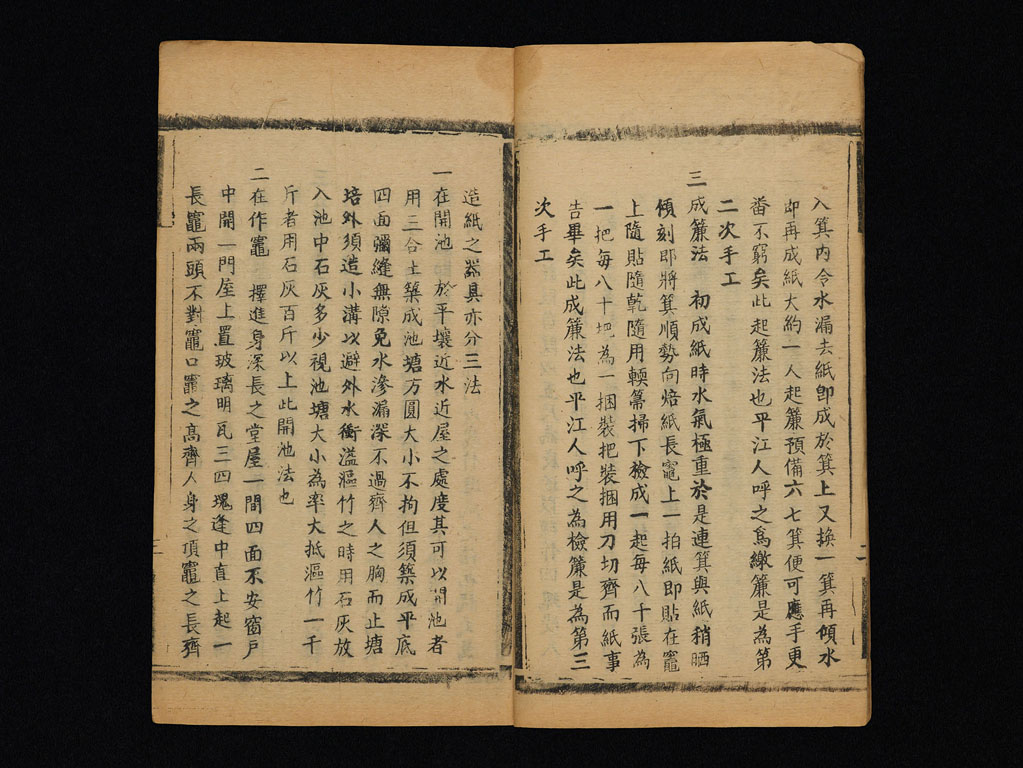 入箕內令水漏去紙卽成於箕上又換一箕再傾水
即再成紙大約一人起簾預備六七箕便可應手更
番不窮矣此起簾法也平江人呼之爲繳簾是為第
二次手工
三成簾法 初成紙時水氣極重於是連箕與紙稍晒
傾刻即將箕順勢向焙紙長竈上一拍紙即貼在竈
上隨貼隨乾隨用輭箒掃下檢成一起每八十張為
一把每八十把為一捆裝把裝捆用刀切齊而紙事
告畢矣此成簾法也平江人呼之為檢簾是為第三
次手工
造紙之器具亦分三法
一在開池 於平壤近水近屋之處度其可以開池者
用三合土築成池塘方圓大小不拘但須築成平底
四面彌縫無隙免水滲漏深不過齊人之胸而止塘
培外須造小溝以避外水衝溢漚竹之時用石灰放
入池中石灰多少視池塘大小為率大抵漚竹一千
斤者用石灰百斤以上此開池法也
二在作竈 擇進身深長之堂屋一間四面不安窗戶
中開一門屋上置玻璃明瓦三四塊逢中直上起一
長竈兩頭不對竈口竈之高齊人身之頂竈之長齊
二